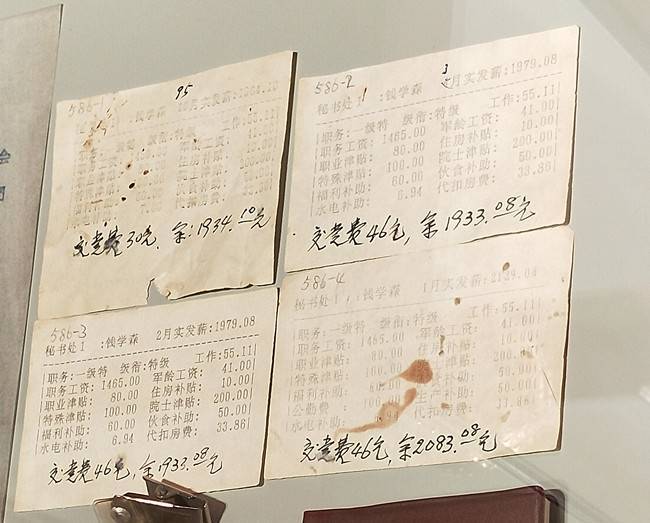 586-1
95
:钱学森
职务:一级特 级衔:特级
交党费30元, 余:1934.10元
586-2
3
秘书处1 :钱学森 月实发薪:1979.08
职务:一级特 级衔:特级 工作:55.11
职务工资: 1465.00 军龄工资: 41.00
职业津贴: 80.00 住房补贴: 10.00
特殊津贴: 100.00 院士津贴: 200.00
福利补助: 60.00 伙食补助: 50.00
水电补助: 6.94 代扣房费: 33.86
交党费46元, 余1933.08元
586-3
秘书处1 :钱学森 2月实发薪:1979.08
职务:一级特 级衔:特级 工作:55.11
职务工资: 1465.00 军龄工资: 41.00
职业津贴: 80.00 住房补贴: 10.00
特殊津贴: 100.00 院士津贴: 200.00
福利补助: 60.00 伙食补助: 50.00
水电补助: 6.94 代扣房费: 33.86
交党费46元, 余1933.08元
586-4
秘书处1 :钱学森 1月实发薪:2129.08
职务:一级特 级衔:特级 工作:55.11
职务工资: 1465.00 军龄工资: 41.00
职业津贴: 80.00 住房补贴:
特殊津贴: 100.00 院士津贴: 200.00
福利补助: 伙食补助: 50.00
公勤费:
水电补助: 代扣房费: 33.86
交党费46元, 余2083.08元